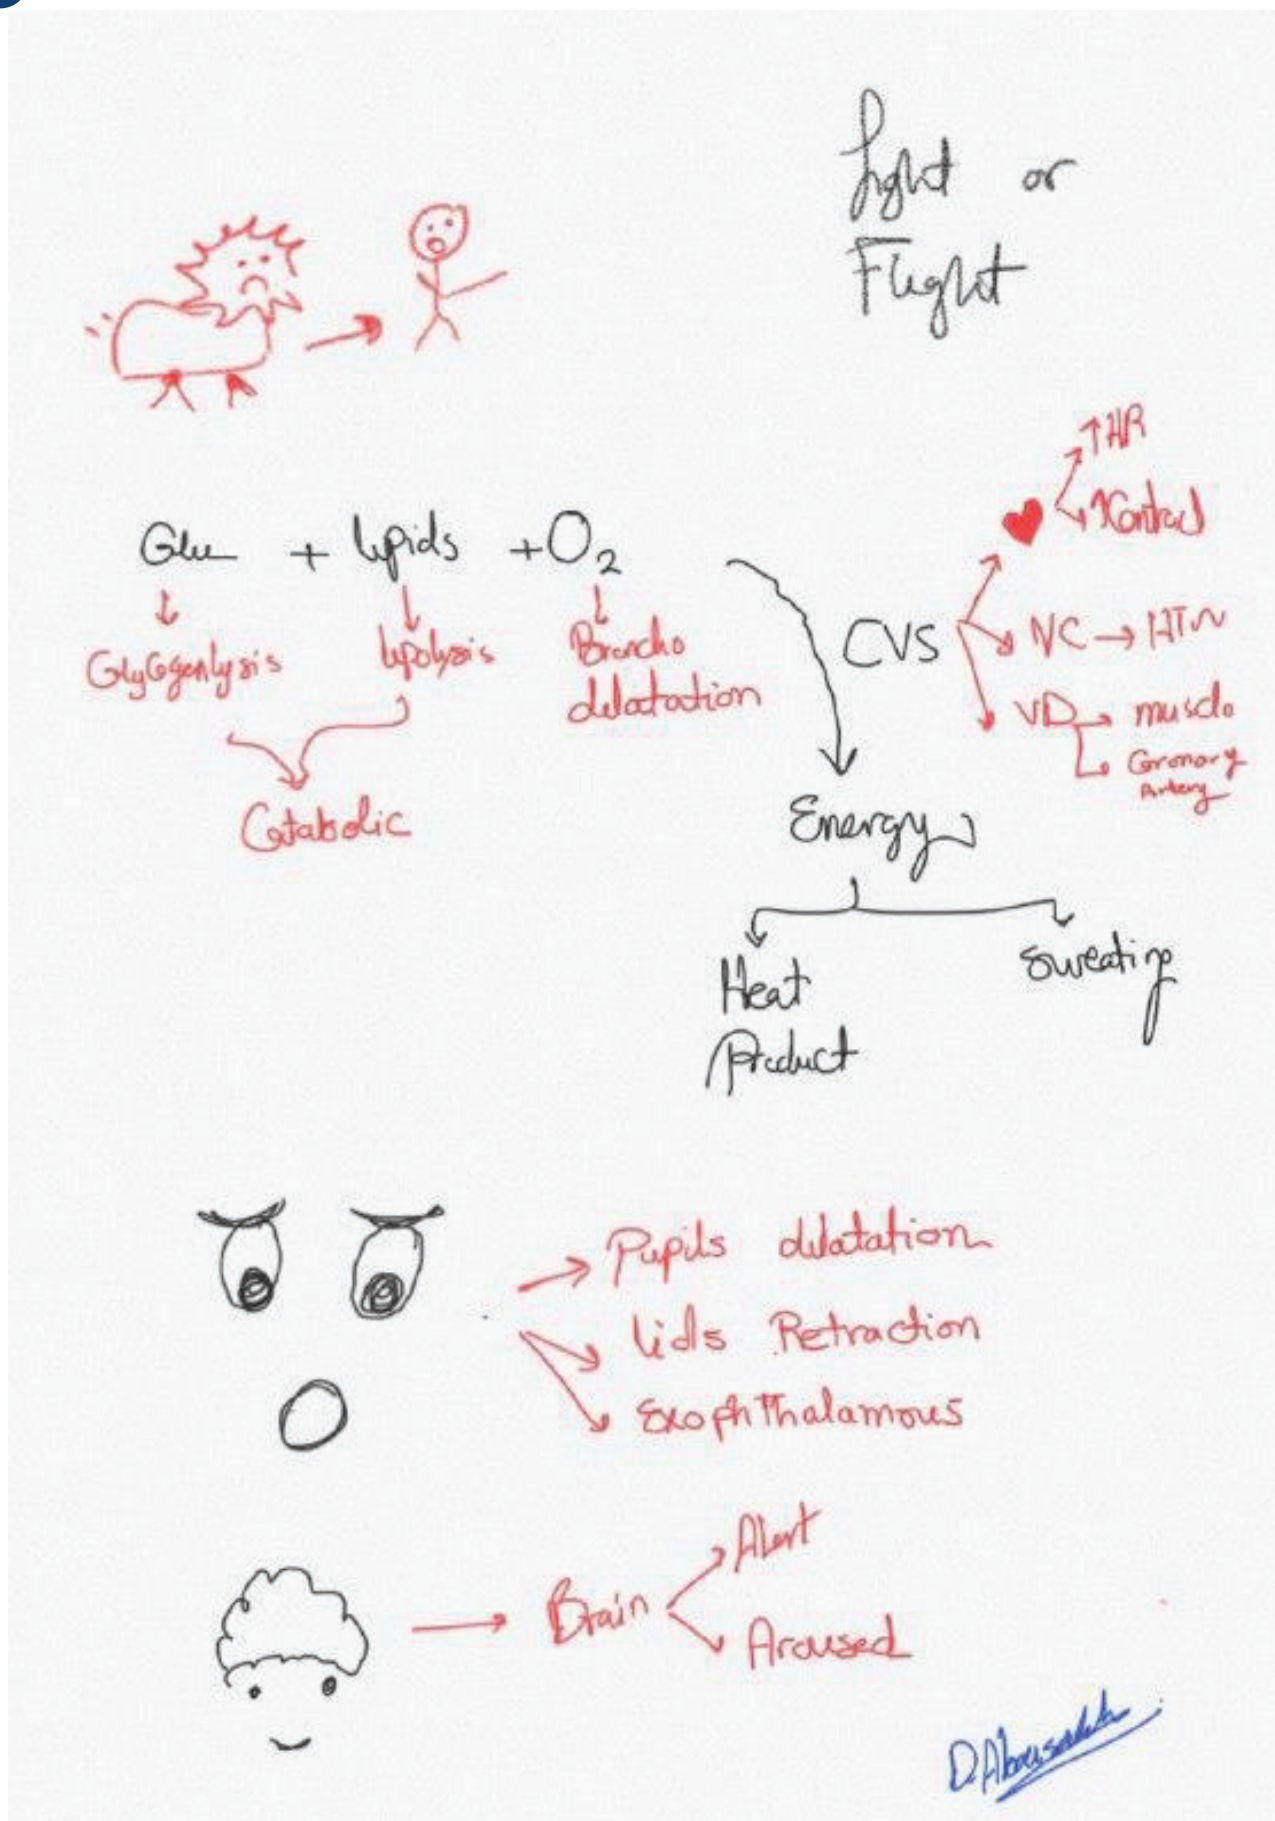 fight or
Flight
Glu + lipids + O2
GlyCogenlysis
lipolysis
Broncho
dilatation
Catabolic
CVS
↑HR
↑Contract
VC → HTN
VD → muscle
Coronary
Artery
Energy
Heat
Product
sweating
Pupils dilatation
lids Retraction
ExophThalamous
Brain
Alert
Aroused